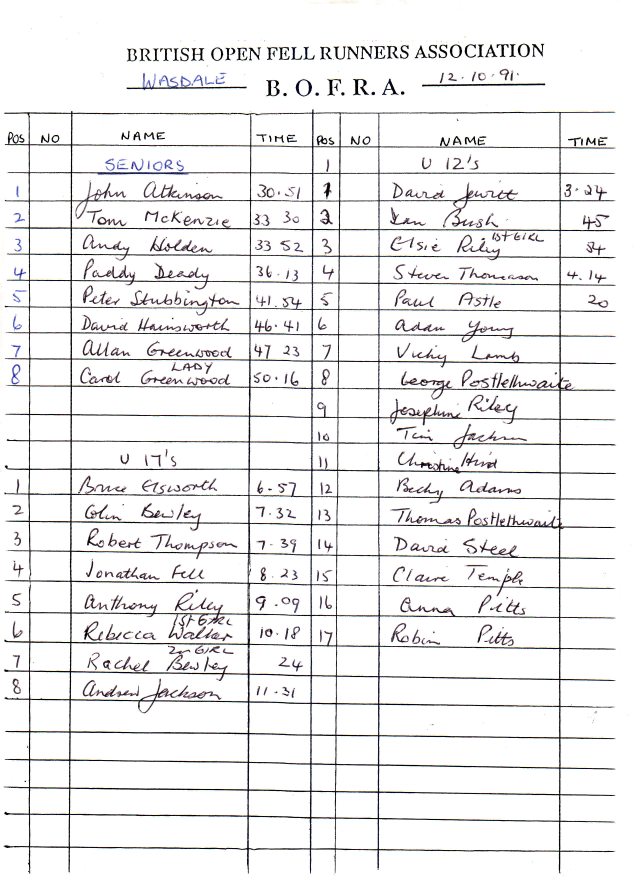 BRITISH OPEN FELL RUNNERS ASSOCIATION
WASDALE B. O. F. R. A. 12.10.91.
POS NO NAME TIME
SENIORS
1 John Atkinson 30.51
2 Tom McKenzie 33 30
3 Andy Holden 33 52
4 Paddy Deady 36.13
5 Peter Stubbington 41.54
6 David Hainsworth 46.41
7 Allan Greenwood 47 23
LADY
8 Carol Greenwood 50.16
U 17's
1 Bruce Elsworth 6.57
2 Colin Bewley 7.32
3 Robert Thompson 7.39
4 Jonathan Fell 8.23
5 Anthony Riley 9.09
1ST GIRL
6 Rebecca Walker 10.18
2nd GIRL
7 Rachel Bewley 24
8 Andrew Jackson 11.31
POS NO NAME TIME
1 U 12's
1 David Jewitt 3.24
2 Ian Bush 45
1ST GIRL
3 Elsie Riley 54
4 Steven Thomason 4.14
5 Paul Astle 20
6 Adam Young
7 Vicky Lamb
8 George Postlethwaite
9 Josephine Riley
10 Tim Jackson
11 Christine Hird
12 Becky Adams
13 Thomas Postlethwaite
14 David Steel
15 Claire Temple
16 Anna Pitts
17 Robin Pitts